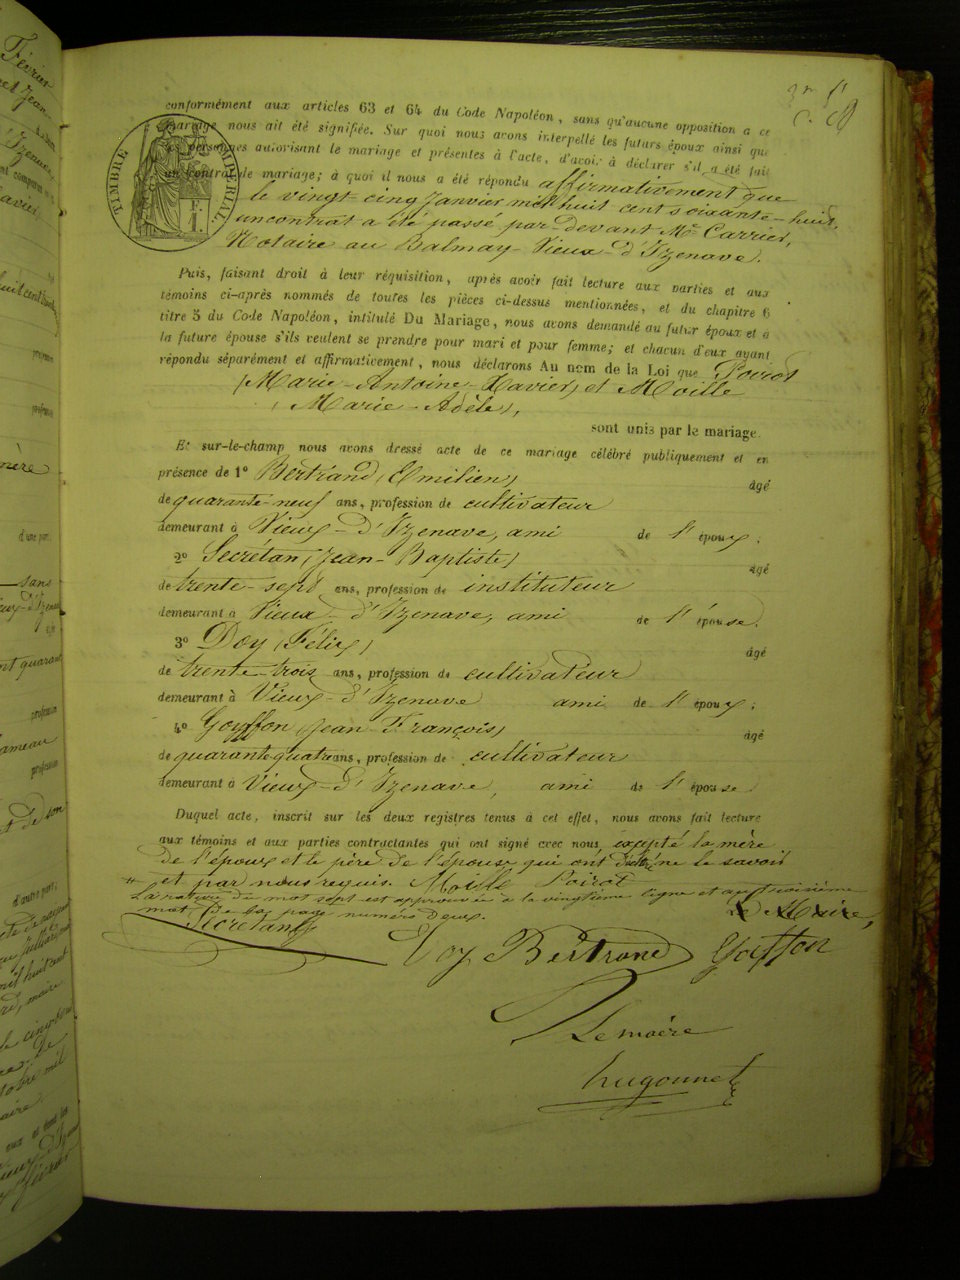 conformément aux articles 63 et 64 du Code Napoléon, sans qu'aucune opposition a ce
mariage nous ait été signifiée. Sur quoi nous avons interpellé les futurs époux ainsi que
les personnes autorisant le mariage et présentes à l'acte, d'avoir à déclarer s'il a été fait
un contrat de mariage; à quoi il nous a été répondu affirmativement que
le vingt-cinq Janvier mil huit cent soixante-huit,
un contrat a été passé par-devant Me Carrier,
Notaire au Balmay-Vieux-d'Izenave.
TIMBRE IMPÉRIAL
Puis, faisant droit à leur réquisition, après avoir fait lecture aux parties et aux
témoins ci-après nommés de toutes les pièces ci-dessus mentionnées, et du chapitre 6
titre 5 du Code Napoléon, intitulé Du Mariage, nous avons demandé au futur époux et à
la future épouse s'ils veulent se prendre pour mari et pour femme; et chacun d'eux ayant
répondu séparément et affirmativement, nous déclarons Au nom de la Loi que Poirot
(Marie-Antoine-Xavier) et Moille
(Marie-Adèle),
sont unis par le mariage.
Et sur-le-champ nous avons dressé acte de ce mariage célébré publiquement et en
présence de 1° Bertrand (Emilien) âgé
de quarante-neuf ans, profession de cultivateur
demeurant à Vieux-d'Izenave, ami de l'époux;
2° Secrétan (Jean-Baptiste) âgé
de trente-sept ans, profession de instituteur
demeurant à Vieux-d'Izenave, ami de l'épouse.
3° Doy (Félix) âgé
de trente-trois ans, profession de cultivateur
demeurant à Vieux-d'Izenave ami de l'époux;
4° Goyffon (Jean-François) âgé
de quarante-quatre ans, profession de cultivateur
demeurant à Vieux-d'Izenave, ami de l'épouse
Duquel acte, inscrit sur les deux registres tenus à cet effet, nous avons fait lecture
aux témoins et aux parties contractantes qui ont signé avec nous, excepté la mère
de l'époux et le père de l'épouse qui ont déclaré ne le savoir
et par nous requis. Moille Poirot
La rature du mot sept est approuvée à la vingtième ligne et au troisième
mot de la page numéro deux.
Le Maire,
Secretant
Doy Bertrand Goiffon
Le maire
hugonnet